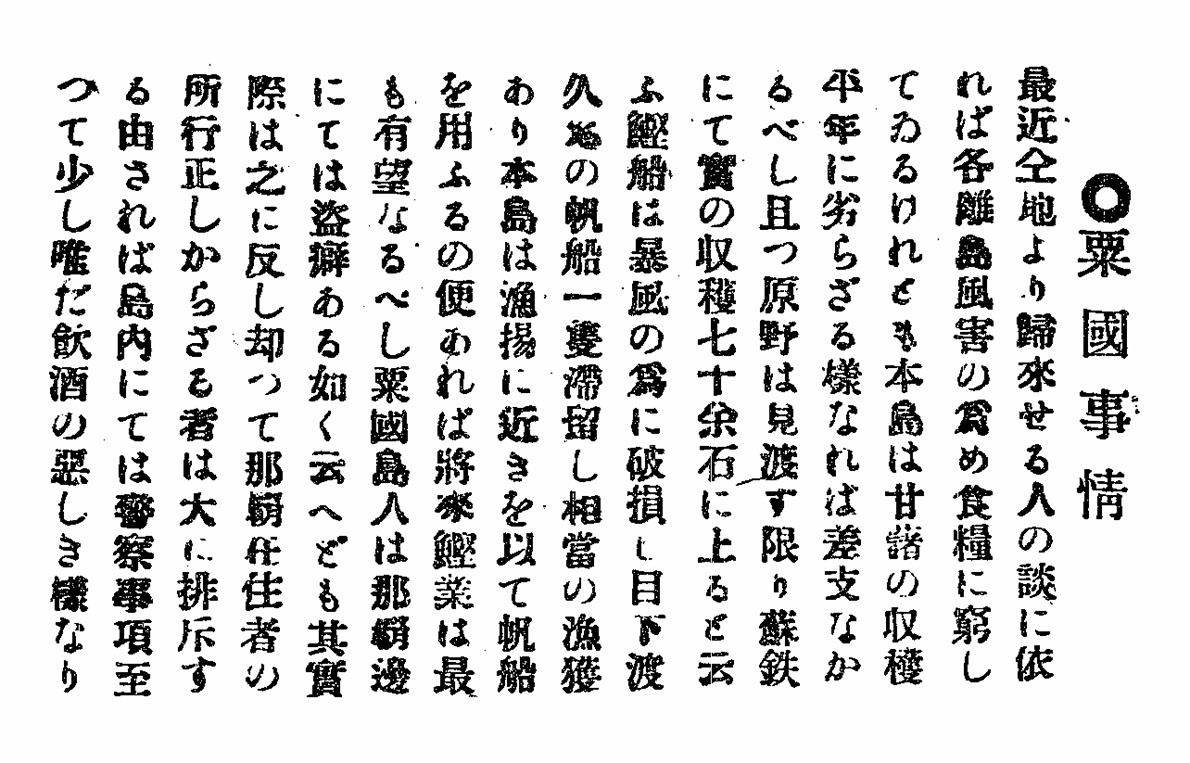 ◎粟國事情
最近仝地より歸來せる人の談に依
れば各離島風害の爲め食糧に窮し
てゐるけれども本島は甘諸の収穫
平年に劣らざる樣なれば差支なか
るべし且つ原野は見渡す限り蘇鉄
にて實の収穫七十余石に上ると云
ふ鰹船は暴風の爲に破損し目下渡
久地の帆船一隻滞留し相當の漁獲
あり本島は漁揚に近きを以て帆船
を用ふるの便あれば將來鰹業は最
も有望なるべし粟國島人は那覇邊
にては盗癖ある如く云へども其實
際は之に反し却つて那覇在住者の
所行正しからざる者は大に排斥す
る由されば島内にては警察事項至
つて少し唯だ飲酒の惡しき樣なり